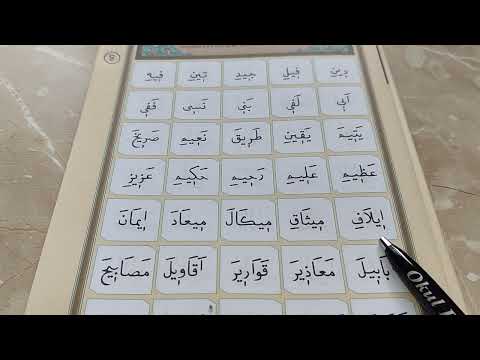 دِينَ فِيلِ جِيدِ تِينِ فِيهِ
اَبِى لَفِى بَنِى نَسِىَ فَفِى
يَتِيمَ يَقِينِ طَرِيقَ نَعِيمِ صَرِيخَ
عَظِيمِ عَلِيمِ رَحِيمِ حَكِيمِ عَزِيزِ
اِيلَافِ مِيثَاقِ مِيكَالَ مِيعَادَ اِيمَانَ
بَابِيلَ مَعَاذِيرَ قَوَارِيرَ اَقَاوِيلَ مَصَابِيحَ
Okul